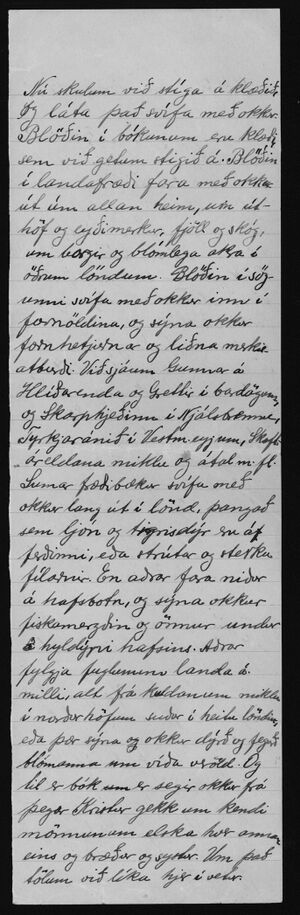 Nú skulum við stíga á klæðið,
og láta það svífa með okkur.
Blöðin í bókunum eru klæði,
sem við getum stigið á. Blöðin
í landafræði fara með okkur
út um allan heim, um út-
höf og eyðimerkur, fjöll og skóg,
um borgir og blómlega akra í
öðrum löndum. Blöðin í sög-
unni svífa með okkur inn í
fornöldina, og sýna okkur
fornhetjurnar og liðna merkis
atburði. Við sjáum Gunnar á
Hlíðarenda og Gretti í bardögum,
og Skarphjeðinn í Njálsbrennu,
Tyrkjaránið í Vestm.eyjum, Skaft-
áreldana miklu og ótal m. fl.
Sumar fræðibækur svífa með
okkur langt út í lönd, þangað
sem ljón og tigrisdýr eru á
ferðinni, eða strútar og sterku
fílarnir. En aðrar fara niður
á hafsbotn, og sýna okkur
fiskamergðina og önnur undur
í hyldýpi hafsins. Aðrar
fylgja fuglunum landa á
milli, alt frá kuldanum mikla
í norðurhöfum suður í heitu löndin,
eða þær sýna og okkur dýrð og fegurð
blómanna um víða veröld. Og
til er bók um er segir okkur frá
þegar Kristur gekk um kendi
mönnunum elska hver annan
eins og bræður og systur. Um það
tölum við líka hjer í vetur.